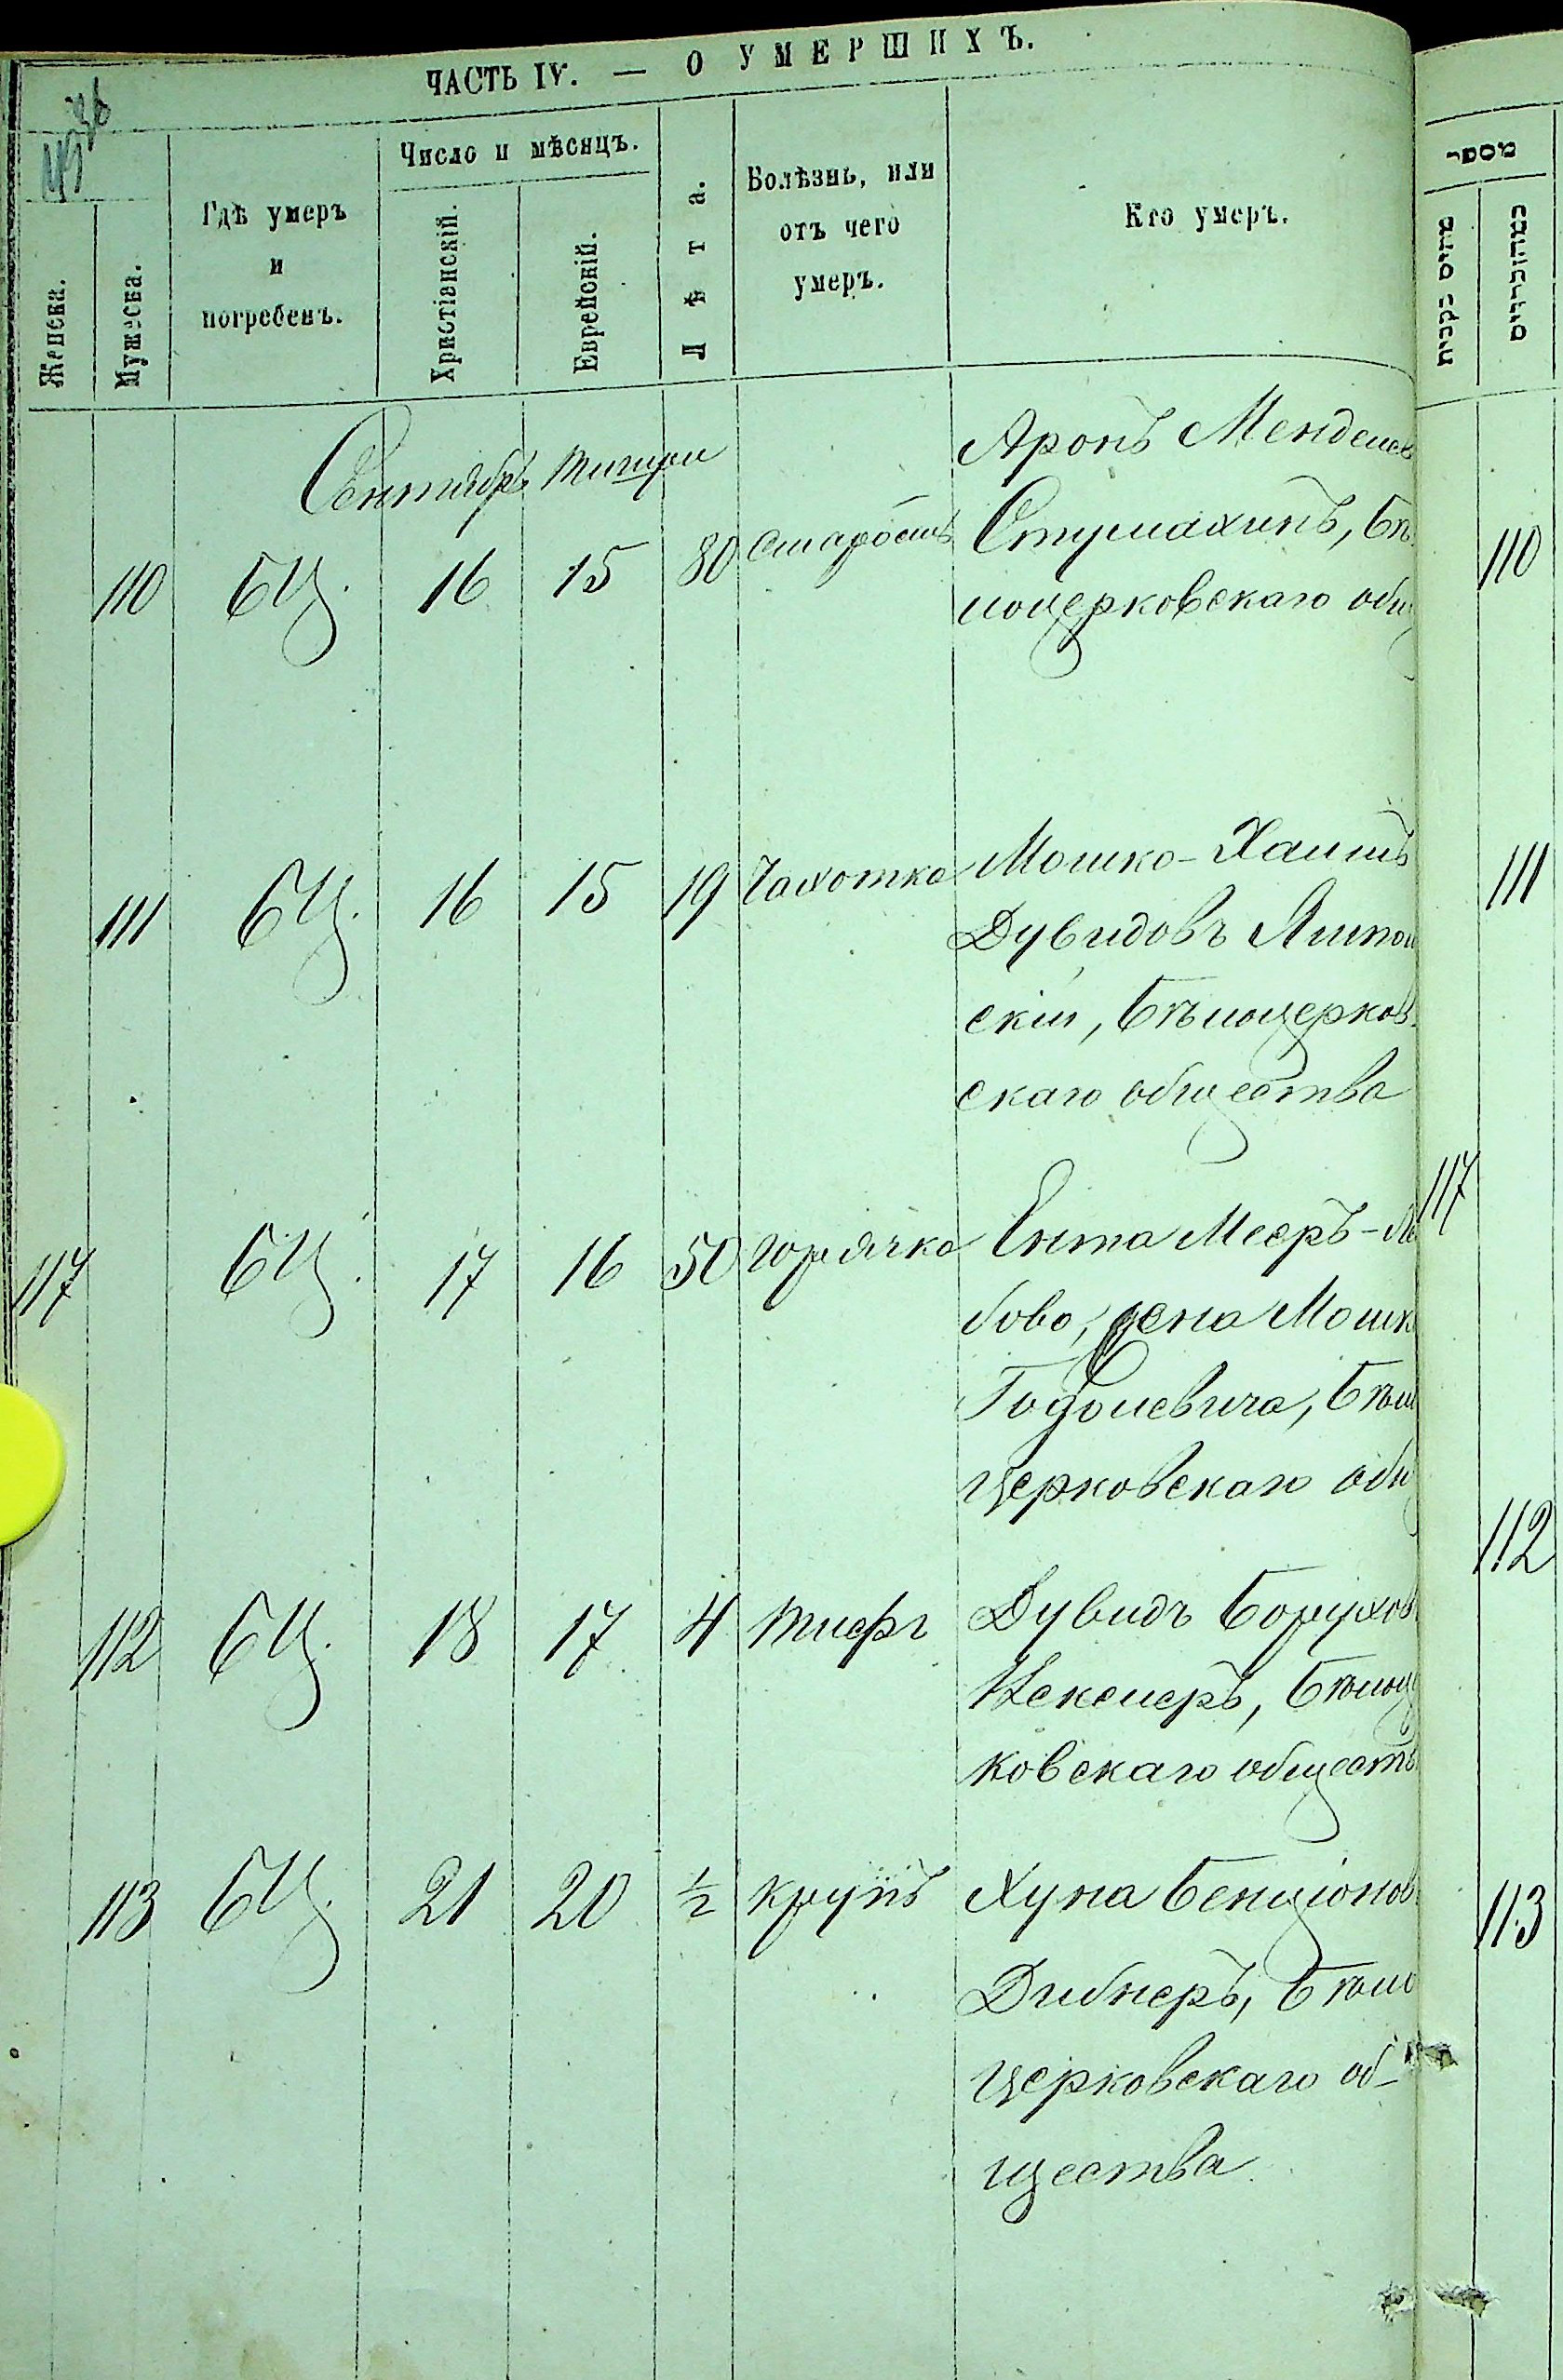 ЧАСТЬ IV. — О УМЕРШИХЪ.
Женска.
Мужеска.
Гдѣ умеръ
и
погребенъ.
Число и мѣсяцъ.
Христіанскій.
Еврейскій.
Лѣта.
Болѣзнь, или
отъ чего
умеръ.
Кто умеръ.
מספר
מהנקבות
מהזכרים
Сентябрь Тишри
110 БЦ. 16 15 80 Старость
Аронъ Менделев
Стумахинъ, Бѣ
лоцерковскаго общ
110
111 БЦ. 16 15 19 Чахотка
Мошко-Хаимъ
Дувидовъ Ямпол
скій, Бѣлоцерков
скаго общества
111
117 БЦ. 17 16 50 горячка
Ента Мееръ-Ле
бова, жена Мошк
Бѣл
церковскаго общ
117
112 БЦ. 18 17 4 тифъ
Дувидъ Борухов
Бѣлоц
ковскаго обществ
112
113 БЦ. 21 20 1/2 крупъ
Хуна Бенціонов
Дибнеръ, Бѣло
церковскаго об-
щества
113